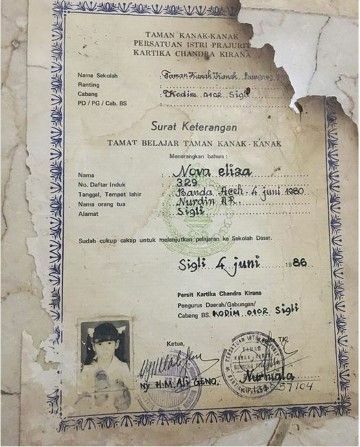 TAMAN KANAK-KANAK
PERSATUAN ISTRI PRAJURIT
KARTIKA CHANDRA KIRANA
Nama Sekolah : Taman Kanak Kanak
Ranting :
Cabang : Kodim 0102 Sigli
PD / PG / Cab. BS :
Surat Keterangan
TAMAT BELAJAR TAMAN KANAK - KANAK
Menerangkan bahwa :
Nama : Nova eliza
No. Daftar Induk : 329
Tanggal, Tempat lahir : Banda Aceh 4 juni 1980
Nama orang tua : Nurdin AR.
Alamat : Sigli
Sudah cukup cakap untuk melanjutkan pelajaran ke Sekolah Dasar.
Sigli 4 juni 1986
Persit Kartika Chandra Kirana
Pengurus Daerah/Gabungan/
Cabang BS. KODIM 0102 Sigli
Ketua,
TK.
NY. H.M. Ali GENO.
Nurmala